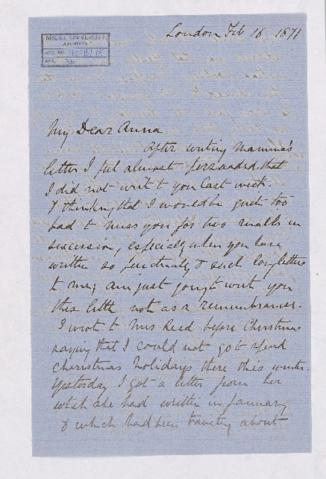 McGILL UNIVERSITY
ARCHIVES
ACC. NO.
REF.
London Feb 16 1871
My Dear Anna
After writing Mamma's
letter I felt almost persuaded that
I did not write to you last week.
& thinking that I would be just too
bad to miss you for two mails in
succession, especially when you have
written so punctually & such long letters
to me, am just going to write you
this little note as a remembrancer.
I wrote to Mrs Reed before Christmas
saying that I could not go to spend
Christmas Holidays there this winter.
Yesterday I got a letter from her
which she had written in January
& which had been travelling about